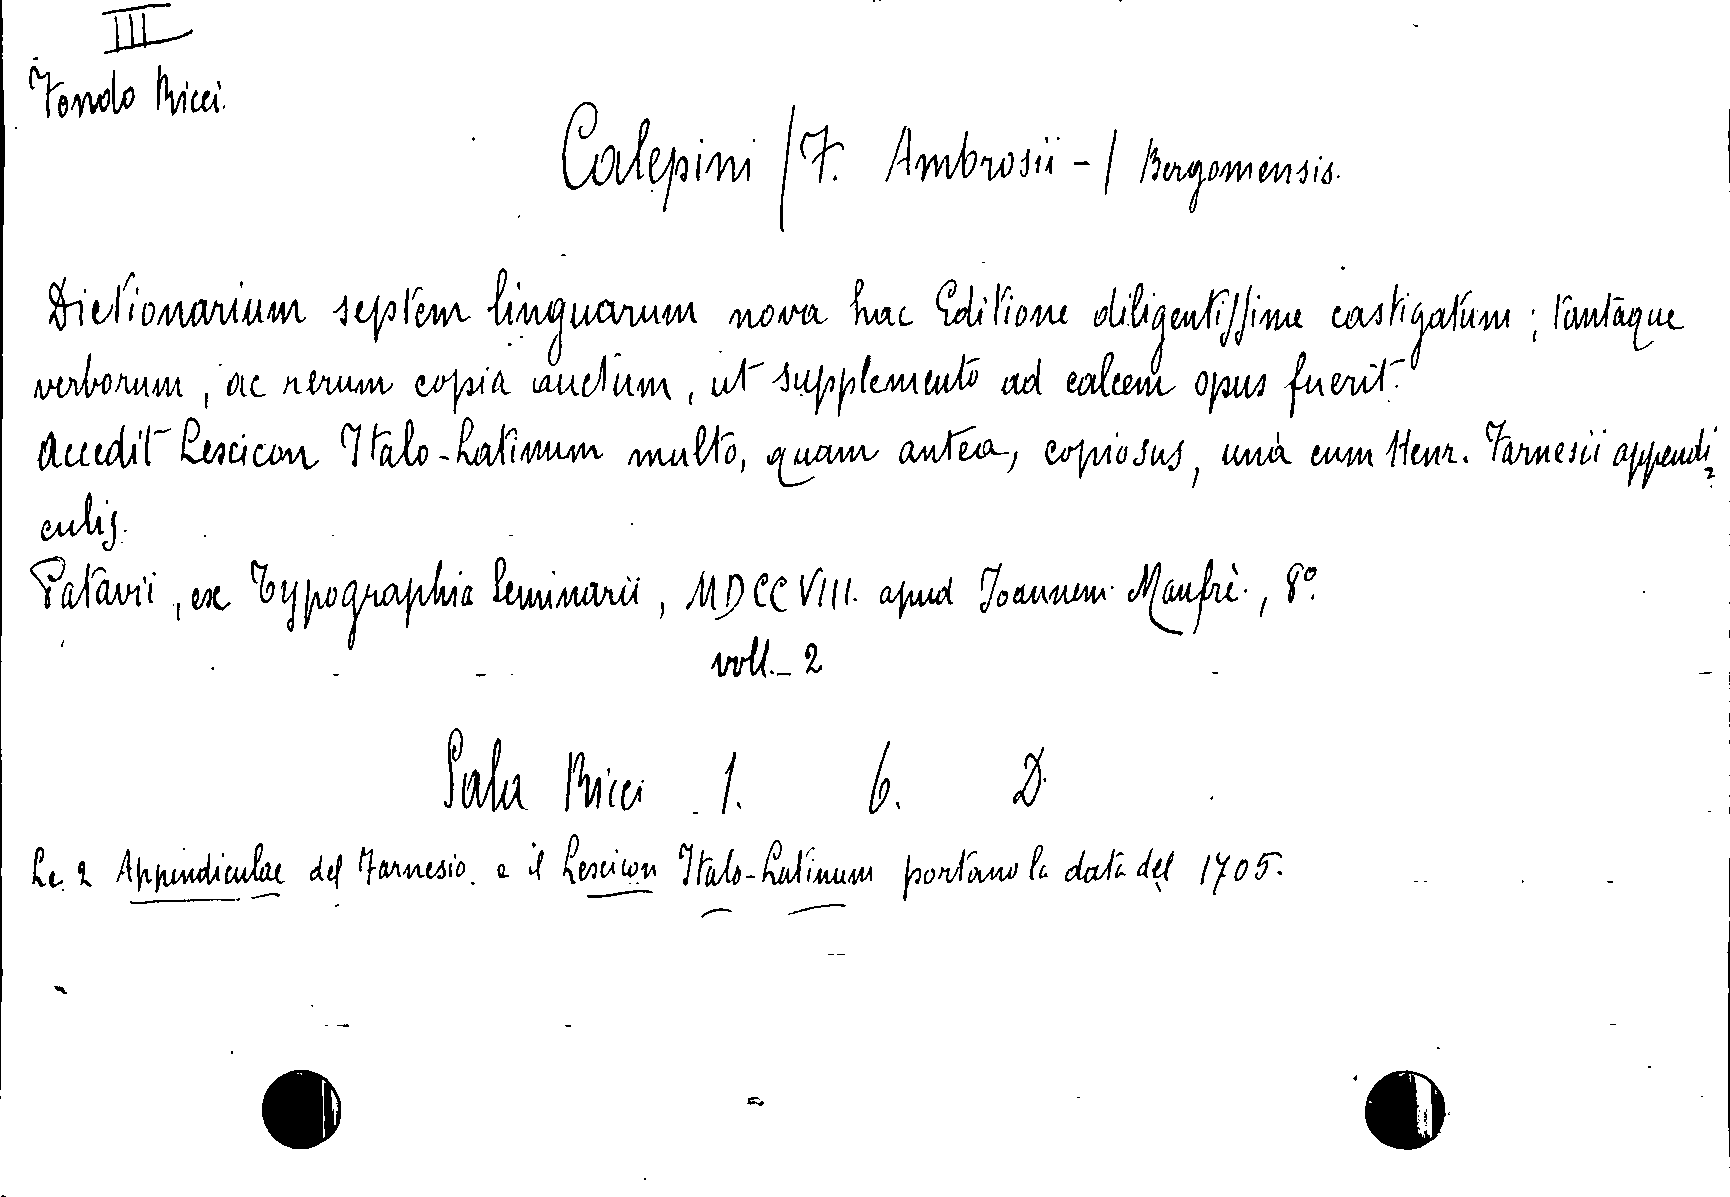 III
Fondo Ricci.
Calepini / F. Ambrosii - / Bergomensis.
Dictionarium septem linguarum nova hac Editione diligentissime castigatum; tantaque
verborum, ac rerum copia auctum, ut supplemento ad calcem opus fuerit.
Accedit Lescicon Italo-Latinum multo, quam antea, copiosus, unà cum Henr. Farnesii appendi
culis.
Patavii, ex Typographia Seminarii, MDCCVIII. apud Joannem Manfrè., 8º.
voll. - 2
Sala Ricci 1. 6. D.
Le 2 Appendiculae del Farnesio e il Lescicon Italo-Latinum portano la data del 1705.